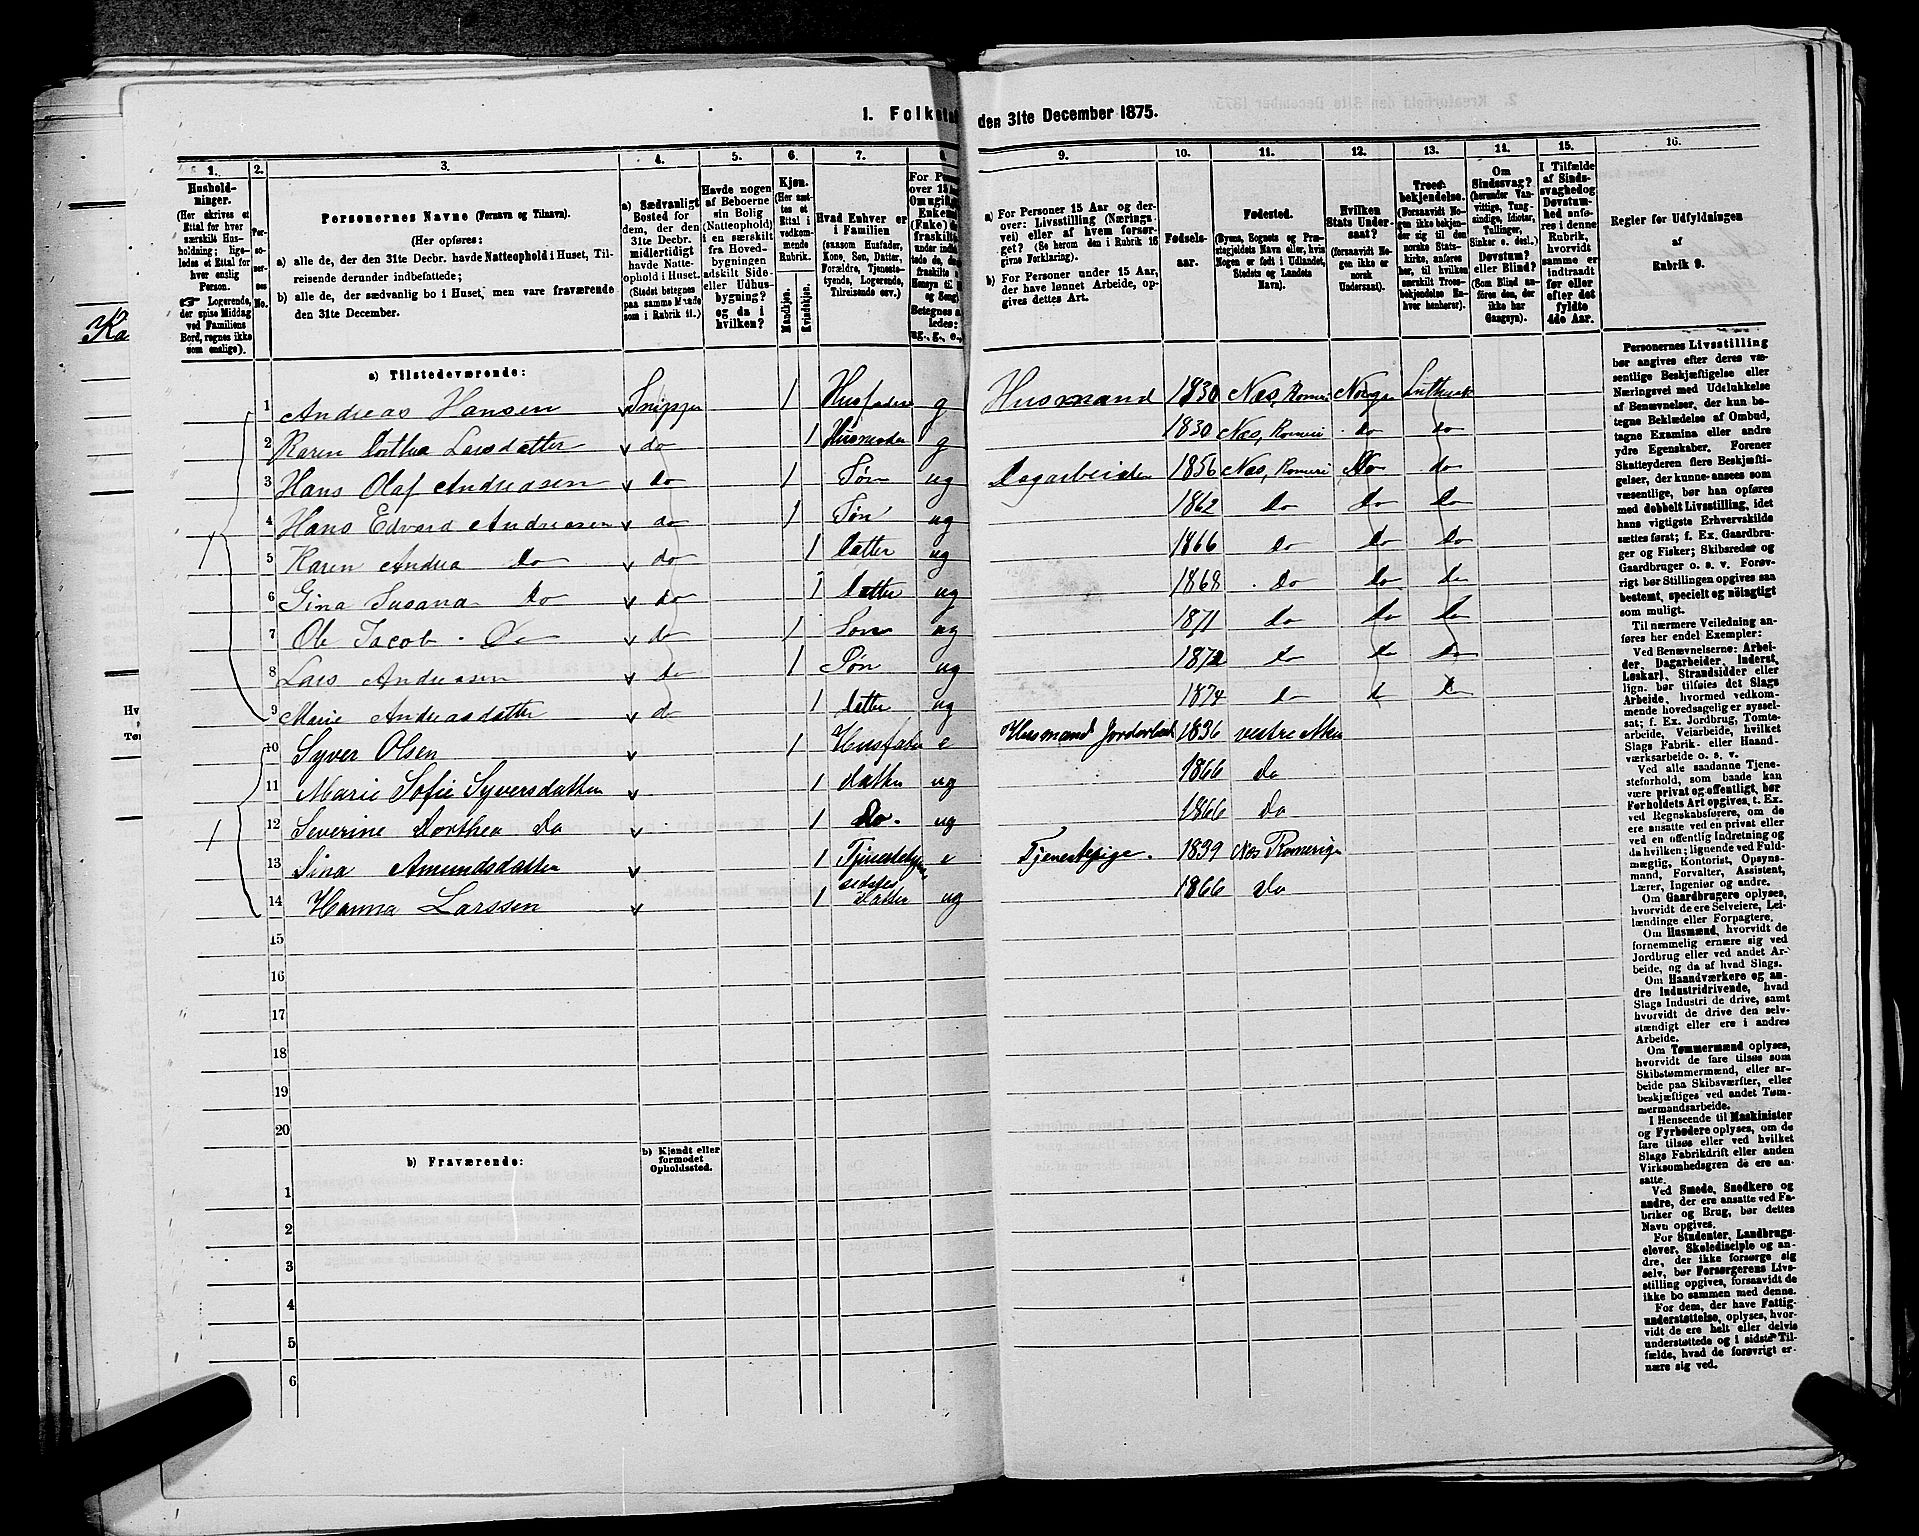 1. Folketal den 31te December 1875.
1.
2.
3.
4.
5.
6.
7.
8.
9.
10.
11.
12.
13.
14.
15.
16.
Hushold-
ninger.
(Her skrives et
Ettal for hver
særskilt Hus-
holdning; lige-
ledes et Ettal for
hver enslig
Person.
☞ Logerende,
der spise Middag
ved Familiens
Bord, regnes ikke
som enslige).
Per-
so-
ner-
nes
No.
Personernes Navne (Fornavn og Tilnavn).
(Her opføres:
a) alle de, der den 31te Decbr. havde Natteophold i Huset, Til-
reisende derunder indbefattede;
b) alle de, der sædvanlig bo i Huset, men vare fraværende
den 31te December.
a) Sædvanligt
Bosted for
dem, der den
31te Decbr.
midlertidigt
havde Natte-
ophold i Huset.
(Stedet betegnes
paa samme Maade
som i Rubrik 11.)
Havde nogen
af Beboerne
sin Bolig
(Natteophold)
i en særskilt
fra Hoved-
bygningen
adskilt Side-
eller Udhus-
bygning?
og da i
hvilken?
Kjøn.
(Her sæt-
tes et
Ettal i
vedkom-
mende
Rubrik.
Mandkjøn.
Kvindekjøn.
Hvad Enhver er
i Familien
(saasom Husfader,
Kone, Søn, Datter,
Forældre, Tjeneste-
tyende, Logerende,
Tilreisende osv.)
a) For Personer 15 Aar og der-
over: Livsstilling (Nærings-
vei) eller af hvem forsør-
get? (Se herom den i Rubrik 16
givne Forklaring).
b) For Personer under 15 Aar,
der have lønnet Arbeide, op-
gives dettes Art.
Fødsels-
aar.
Fødested.
(Byens, Sognets og Præ-
stegjeldets Navn eller, hvis
Nogen er født i Udlandet,
Stedets og Landets
Navn).
Hvilken
Stats Under-
saat?
(forsaavidt No-
gen ikke er
norsk
Undersaat).
Troes-
bekjendelse.
(Forsaavidt No-
gen ikke bekjen-
der sig til den
norske Stats-
kirke, anføres
her, til hvilken
særskilt Troes-
bekjendelse En-
hver henhører).
Om
Sindssvag?
(herunder Van-
vittige, Tung-
sindige, Idioter,
Tullinger,
Sinker o. desl.)
Døvstum?
eller Blind?
(Som Blind an-
føres den, der
ikke har
Gangsyn).
I Tilfælde
af Sinds-
svaghed og
Døvstum-
hed anfø-
res i denne
Rubrik,
hvorvidt
samme er
indtraadt
før eller
efter det
fyldte
4de Aar.
Regler for Udfyldningen
af
Rubrik 9.
a) Tilstedeværende:
1 1 Andreas Hansen v 1 Husfader g Husmand 1830 Nas, Norge
2 Karen Larsdatter v do 1 Husmoder g 1830 Nas, do do
3 Hans Olaf Andreasen v do 1 Søn ug Dagarbeider 1856 Nas, Do do
4 Hans Edvard Andreasen v do 1 Søn ug 1862 Do Do Do
5 Karen Andrea Do v do 1 Datter ug 1866 Do Do Do
6 Gina Susana Do v do 1 Datter ug 1868 Do Do Do
7 Ole Jacob Do v do 1 Søn ug 1871 Do Do Do
8 Lars Andreasen v do 1 Søn ug 1872 Do Do Do
9 Marie Andreasdatter v do 1 Datter ug 1874 Do Do Do
1 10 Syver Olsen v 1 Husfader e Husmand 1836 vestre
11 Marie Sofie Syversdatter v 1 datter ug 1866 Do
12 Severine Dorthea Do v 1 Do. ug 1866 Do
13 Sina Amundsdatter v 1 e Tjenestepige. 1839 Nes Romerige
14 Hanna Larssen v 1 sidstes Datter ug 1866 Do
15
16
17
18
19
20
b) Fraværende:
b) Kjendt eller
formodet
Opholdssted.
1
2
3
4
5
6
Personernes Livsstilling
bør angives efter deres væ-
sentlige Beskjæftigelse eller
Næringsvei med Udelukkelse
af Benævnelser, der kun be-
tegne Beklædelse af Ombud,
tagne Examina eller andre
ydre Egenskaber. Forener
Skatteyderen flere Beskjæfti-
gelser, der kunne ansees som
væsentlige, bør han opføres
med dobbelt Livsstilling, idet
hans vigtigste Erhvervskilde
sættes først; f. Ex. Gaardbru-
ger og Fisker; Skibsreder og
Gaardbruger o. s. v. Forøv-
rigt bør Stillingen opgives saa
bestemt, specielt og nøiagtigt
som muligt.
Til nærmere Veiledning an-
føres her endel Exempler:
Ved Benævnelserne: Arbei-
der, Dagarbeider, Inderst,
Løskarl, Strandsidder eller
lign. bør tilføies det Slags
Arbeide, hvormed vedkom-
mende hovedsagelig er syssel-
sat; f. Ex. Jordbrug, Tomte-
arbeide, Veiarbeide, hvilket
Slags Fabrik- eller Haand-
værksarbeide o. s. v.
Ved alle saadanne Tjene-
steforhold, som baade kan
være privat og offentligt, bør
Forholdets Art opgives, t. Ex.
ved Regnskabsførere, om de
ere ansatte ved en privat eller
ved en offentlig Indretning og
da hvilken; lignende ved Fuld-
mægtig, Kontorist, Opsyns-
mand, Forvalter, Assistent,
Lærer, Ingeniør og andre.
Om Gaardbrugere oplyses,
hvorvidt de ere Selveiere, Lei-
lændinge eller Forpagtere.
Om Husmænd, hvorvidt de
fornemmelig ernære sig ved
Jordbrug eller ved andet Ar-
beide, og da af hvad Slags.
Om Haandværkere og an-
dre Industridrivende, hvad
Slags Industri de drive, samt
hvorvidt de drive den selv-
stændigt eller ere i andres
Arbeide.
Om Tømmermænd oplyses,
hvorvidt de fare tilsøs som
Skibstømmermænd, eller ar-
beide paa Skibsværfter, eller
beskjæftiges ved andet Tøm-
mermandsarbeide.
I Henseende til Maskinister
og Fyrbødere oplyses, om de
fare tilsøs eller ved hvilket
Slags Fabrikdrift eller anden
Virksomhedsgren de ere an-
satte.
Ved Smede, Snedkere og
andre, der ere ansatte ved Fa-
briker og Brug, bør dettes
Navn opgives.
For Studenter, Landbrugs-
elever, Skoledisciple og an-
dre, der ikke forsørge sig
selv, bør Forsørgerens Livs-
stilling opgives, forsaavidt de
ikke bo sammen med denne.
For dem, der have Fattig-
understøttelse, oplyses, hvor-
vidt de ere helt eller delvis
understøttede og i sidste Til-
fælde, hvad de forøvrigt er-
nære sig ved.